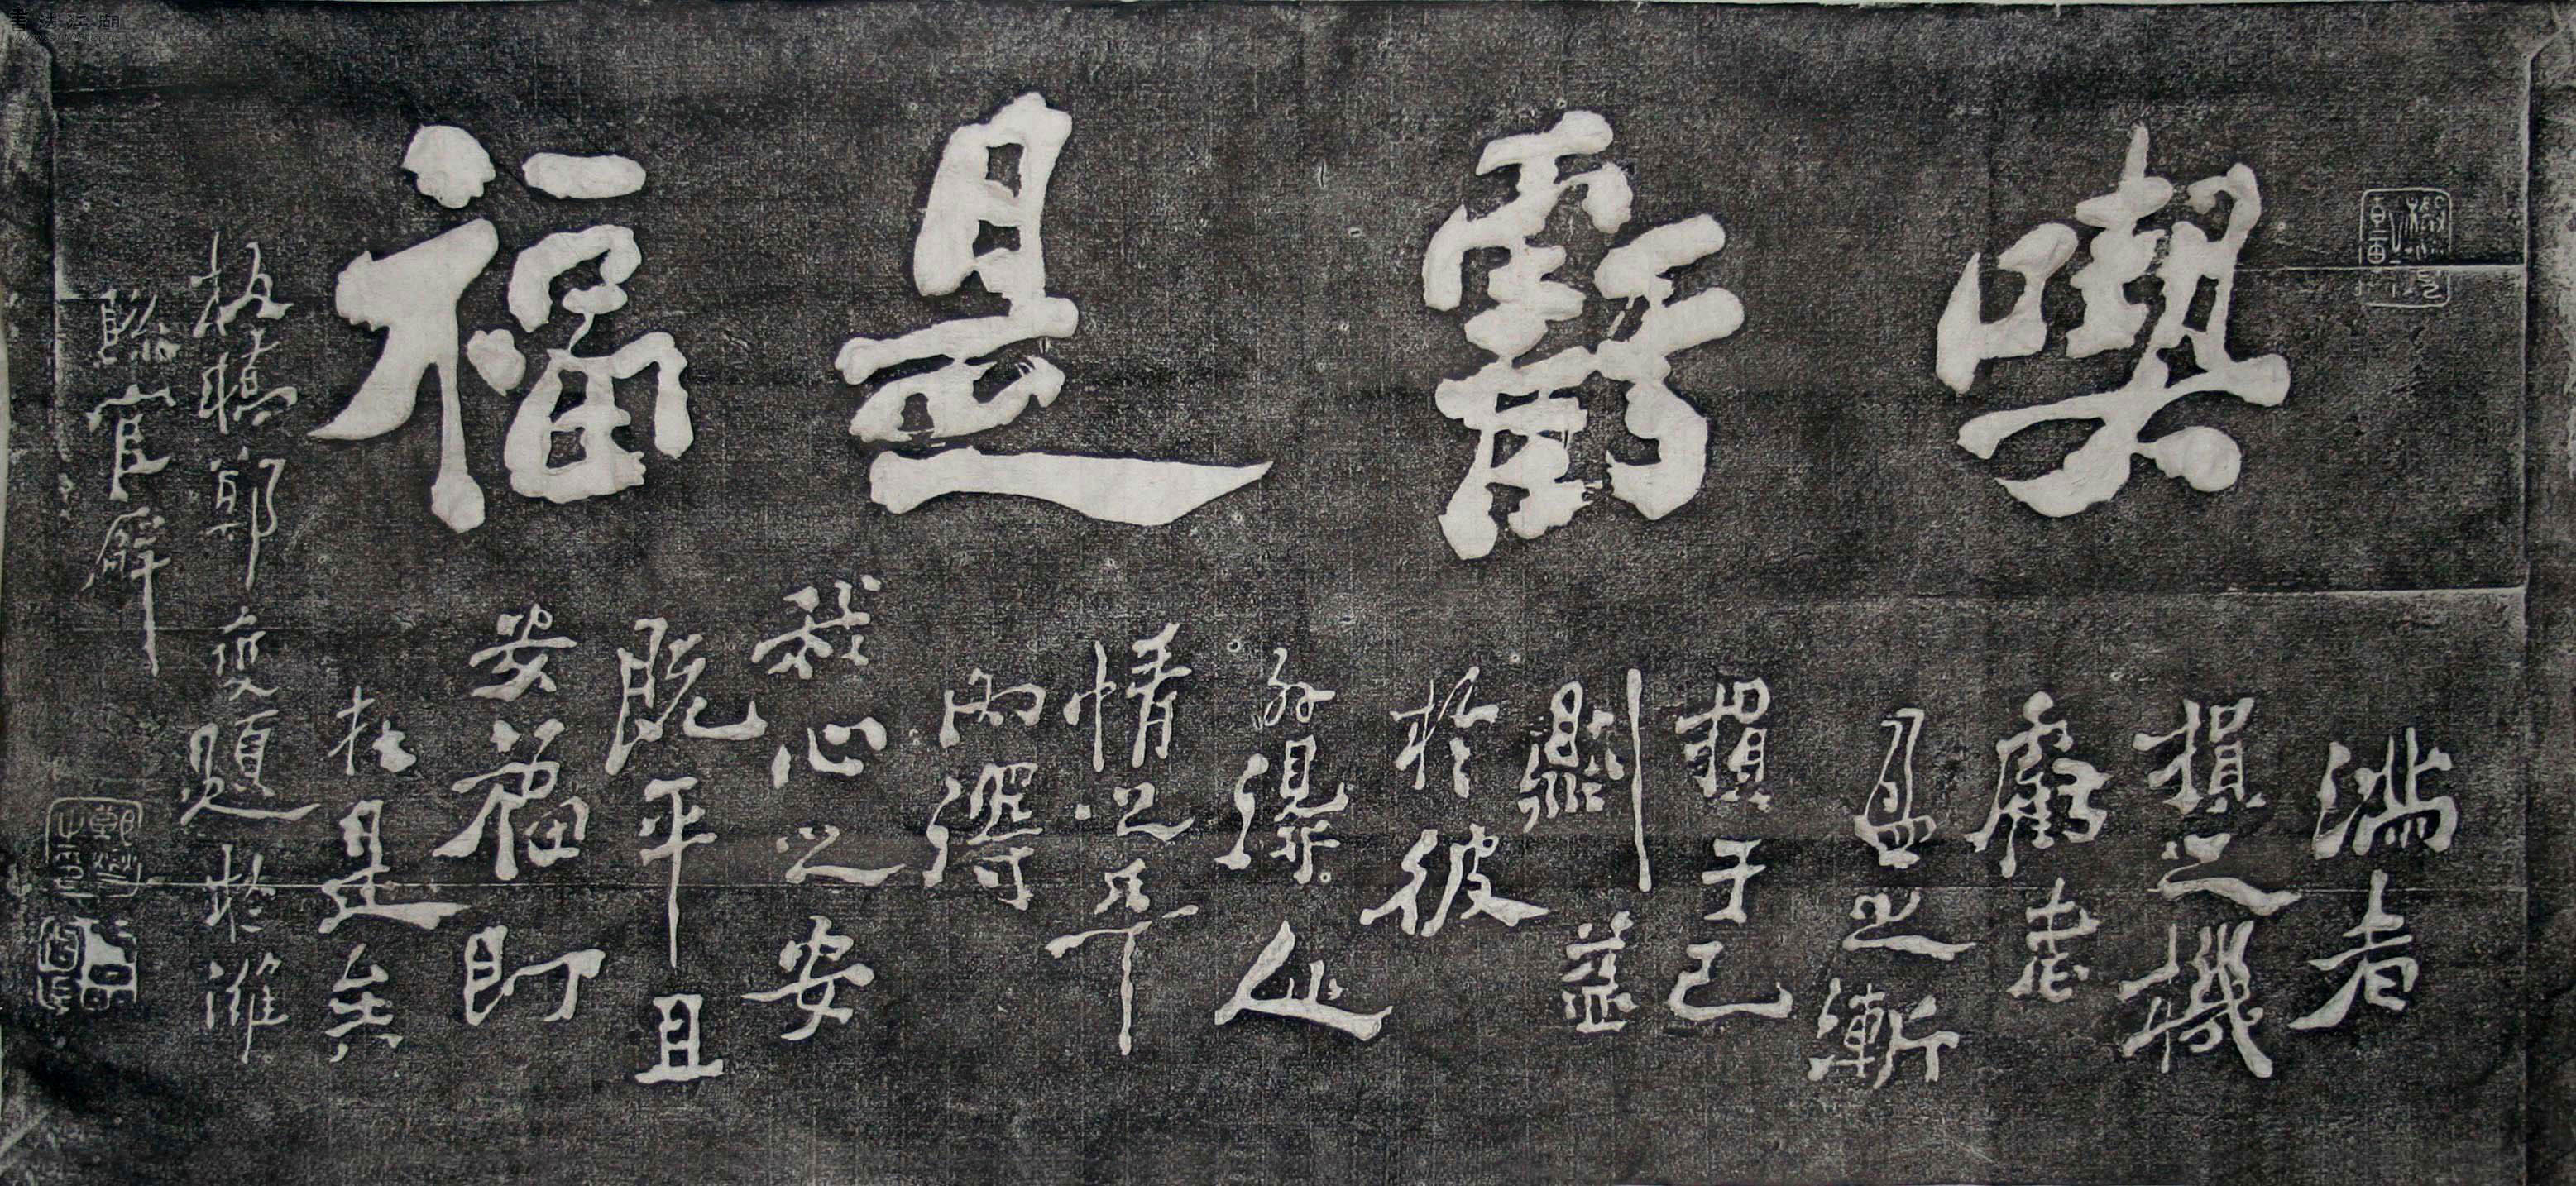 書法江湖
喫虧是福
滿者
損之機
虧者
盈之漸
損于己
則益
於彼
外得人
情之平
內得
我心之安
既平且
安福即
在是矣
板橋鄭燮題於濰
縣官廨